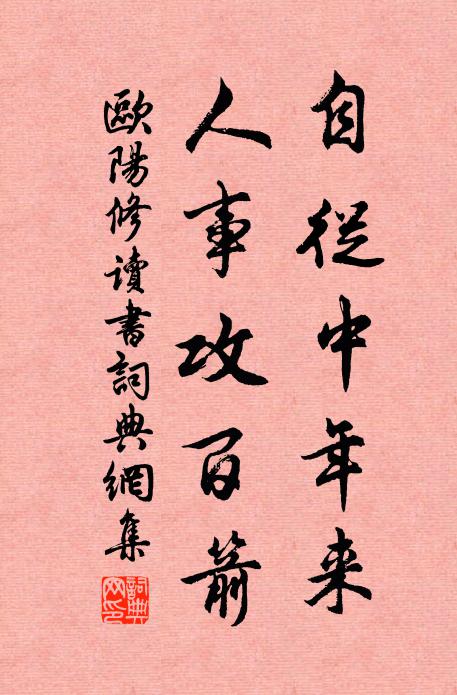 自從中年来
人事攻百箭
歐陽修讀書詞典網集
詞典網印